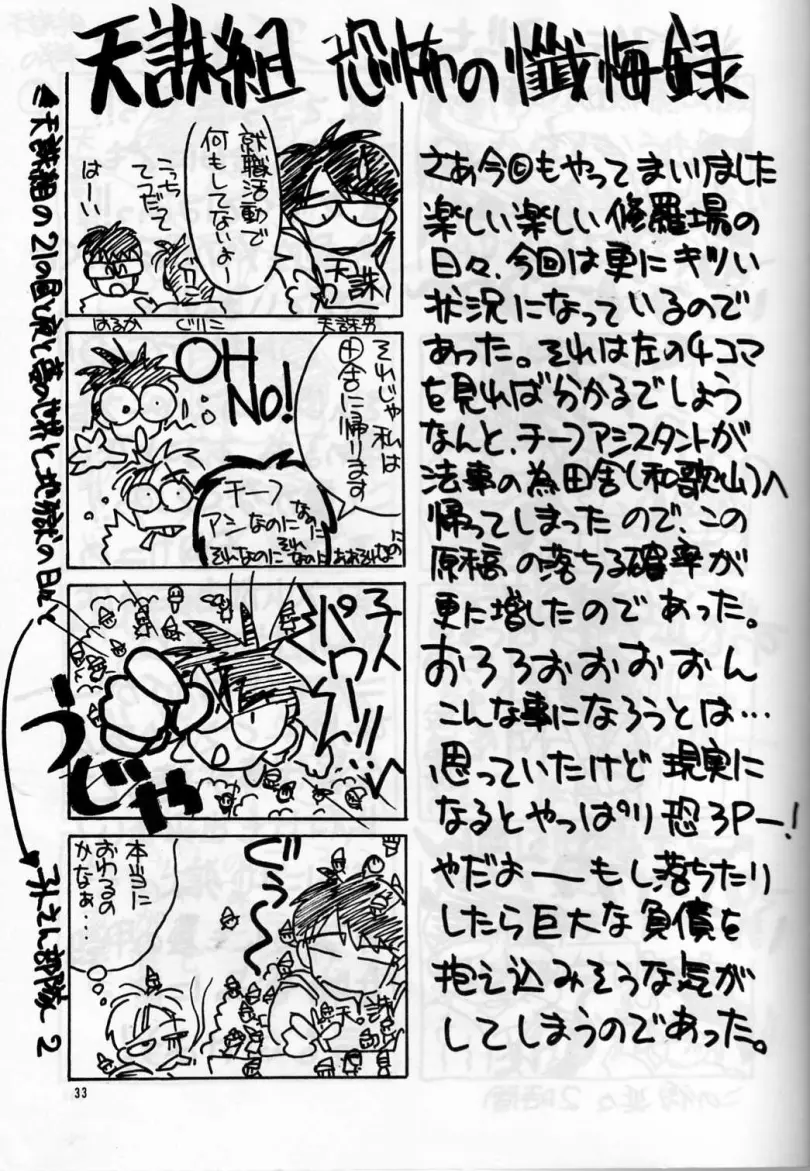 天誅組 恐怖の懺悔録
さあ今回もやってまいりました
楽しい楽しい修羅場の
日々、今回は更にキツい
状況になっているので
あった。それは左の4コマ
を見れば分かるでしょう
なんと、チーフアシスタントが
法事の為田舎(和歌山)へ
帰ってしまったので、この
原稿の落ちる確率が
更に増したのであった。
おろろおおおおん
こんな事になろうとは…
思っていたけど現実に
なるとやっぱり恐ろP—!
やだよ——もし落ちたり
したら巨大な負債を
抱え込みそうな気が
してしまうのであった。
就職活動で
何もしてないよー
こっち
てつだって
はーい
天誅
はるか
ぐりこ
天誅男
それじゃ私は
田舎に帰ります
OH
NO!
チーフ
アシなのに
なのに
そんなのに
それなのに
おおそれなのに
チャイ
パワー!!
うじゃ
ぐぅ〜〜
本当に
おわるの
かなぁ…
天誅組の21の
地獄の日々
部隊 2
33